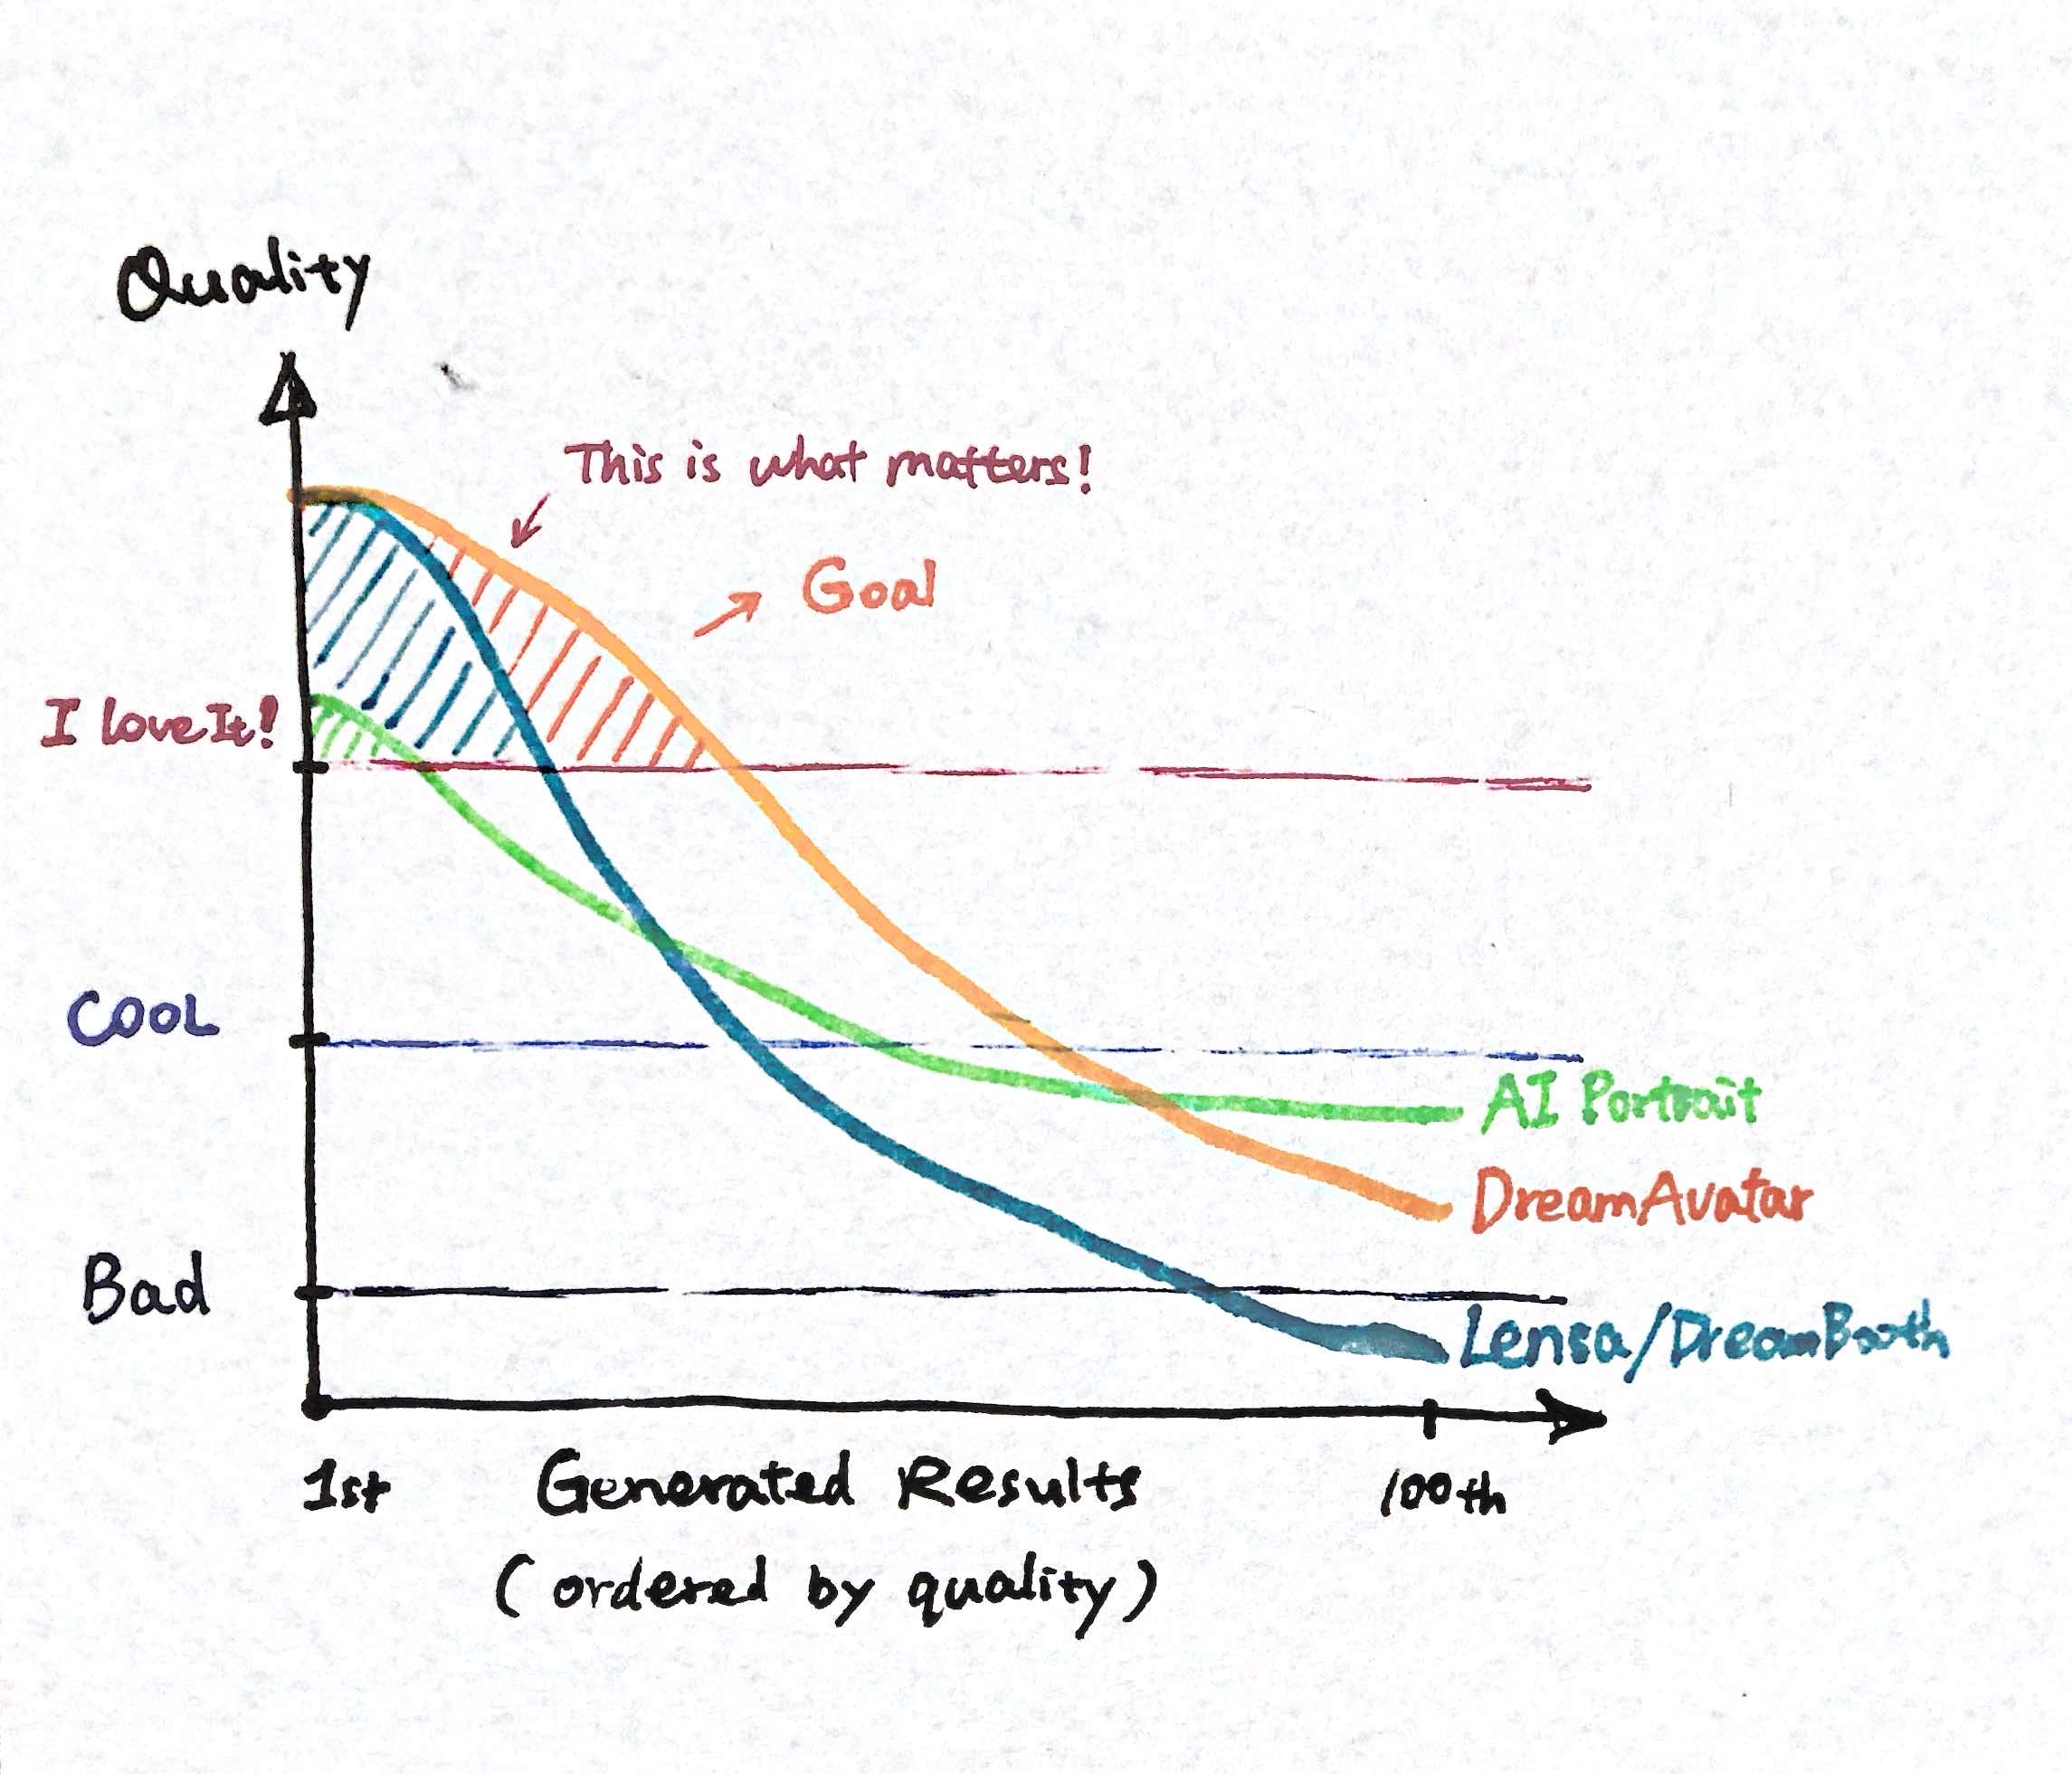 Quality
This is what matters!
Goal
I love It!
COOL
AI Portrait
DreamAvatar
Bad
Lensa/DreamBooth
1st
Generated Results
100th
(ordered by quality)